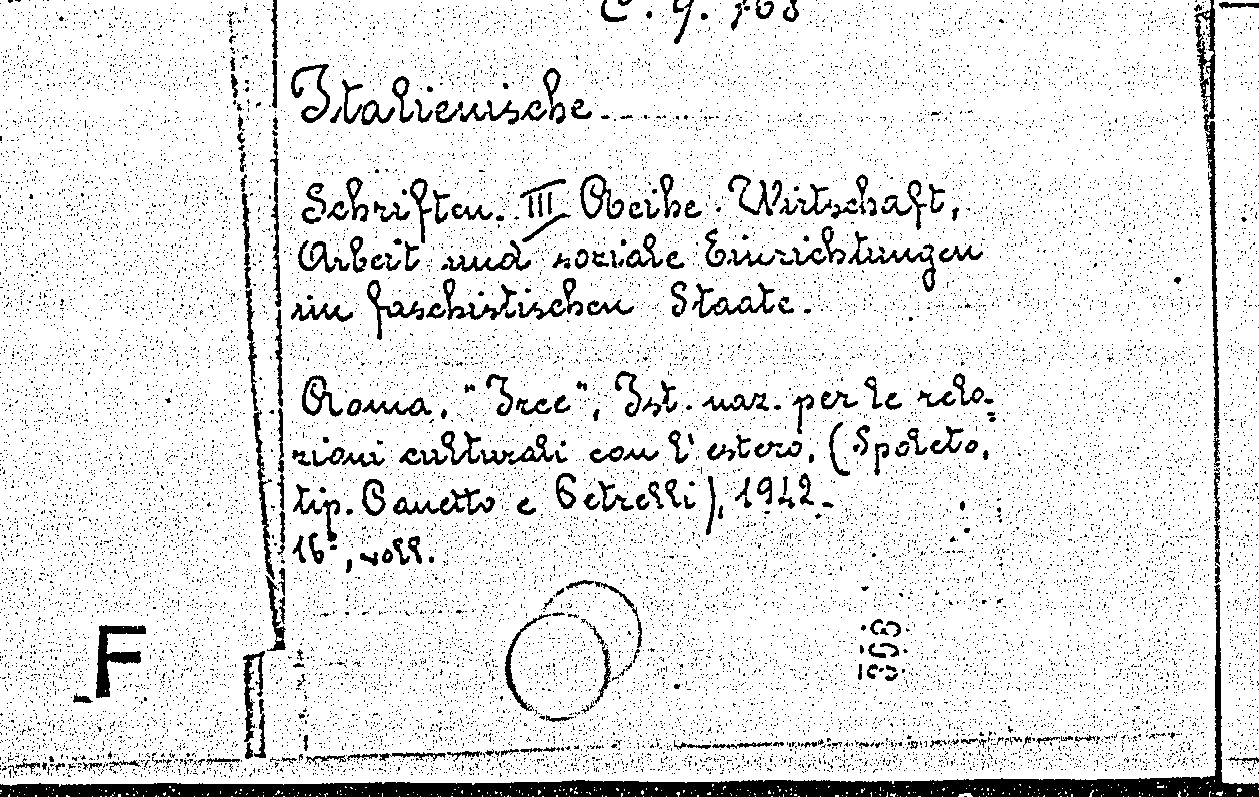 C. 9. 768
Italienische
Schriften. III Reihe. Wirtschaft,
Arbeit und soziale Einrichtungen
im faschistischen Staate.
Roma, "Irce", Ist. naz. per le rela-
zioni culturali con l'estero, (Spoleto,
tip. Panetto e Petrelli), 1942-
16°, voll.
F